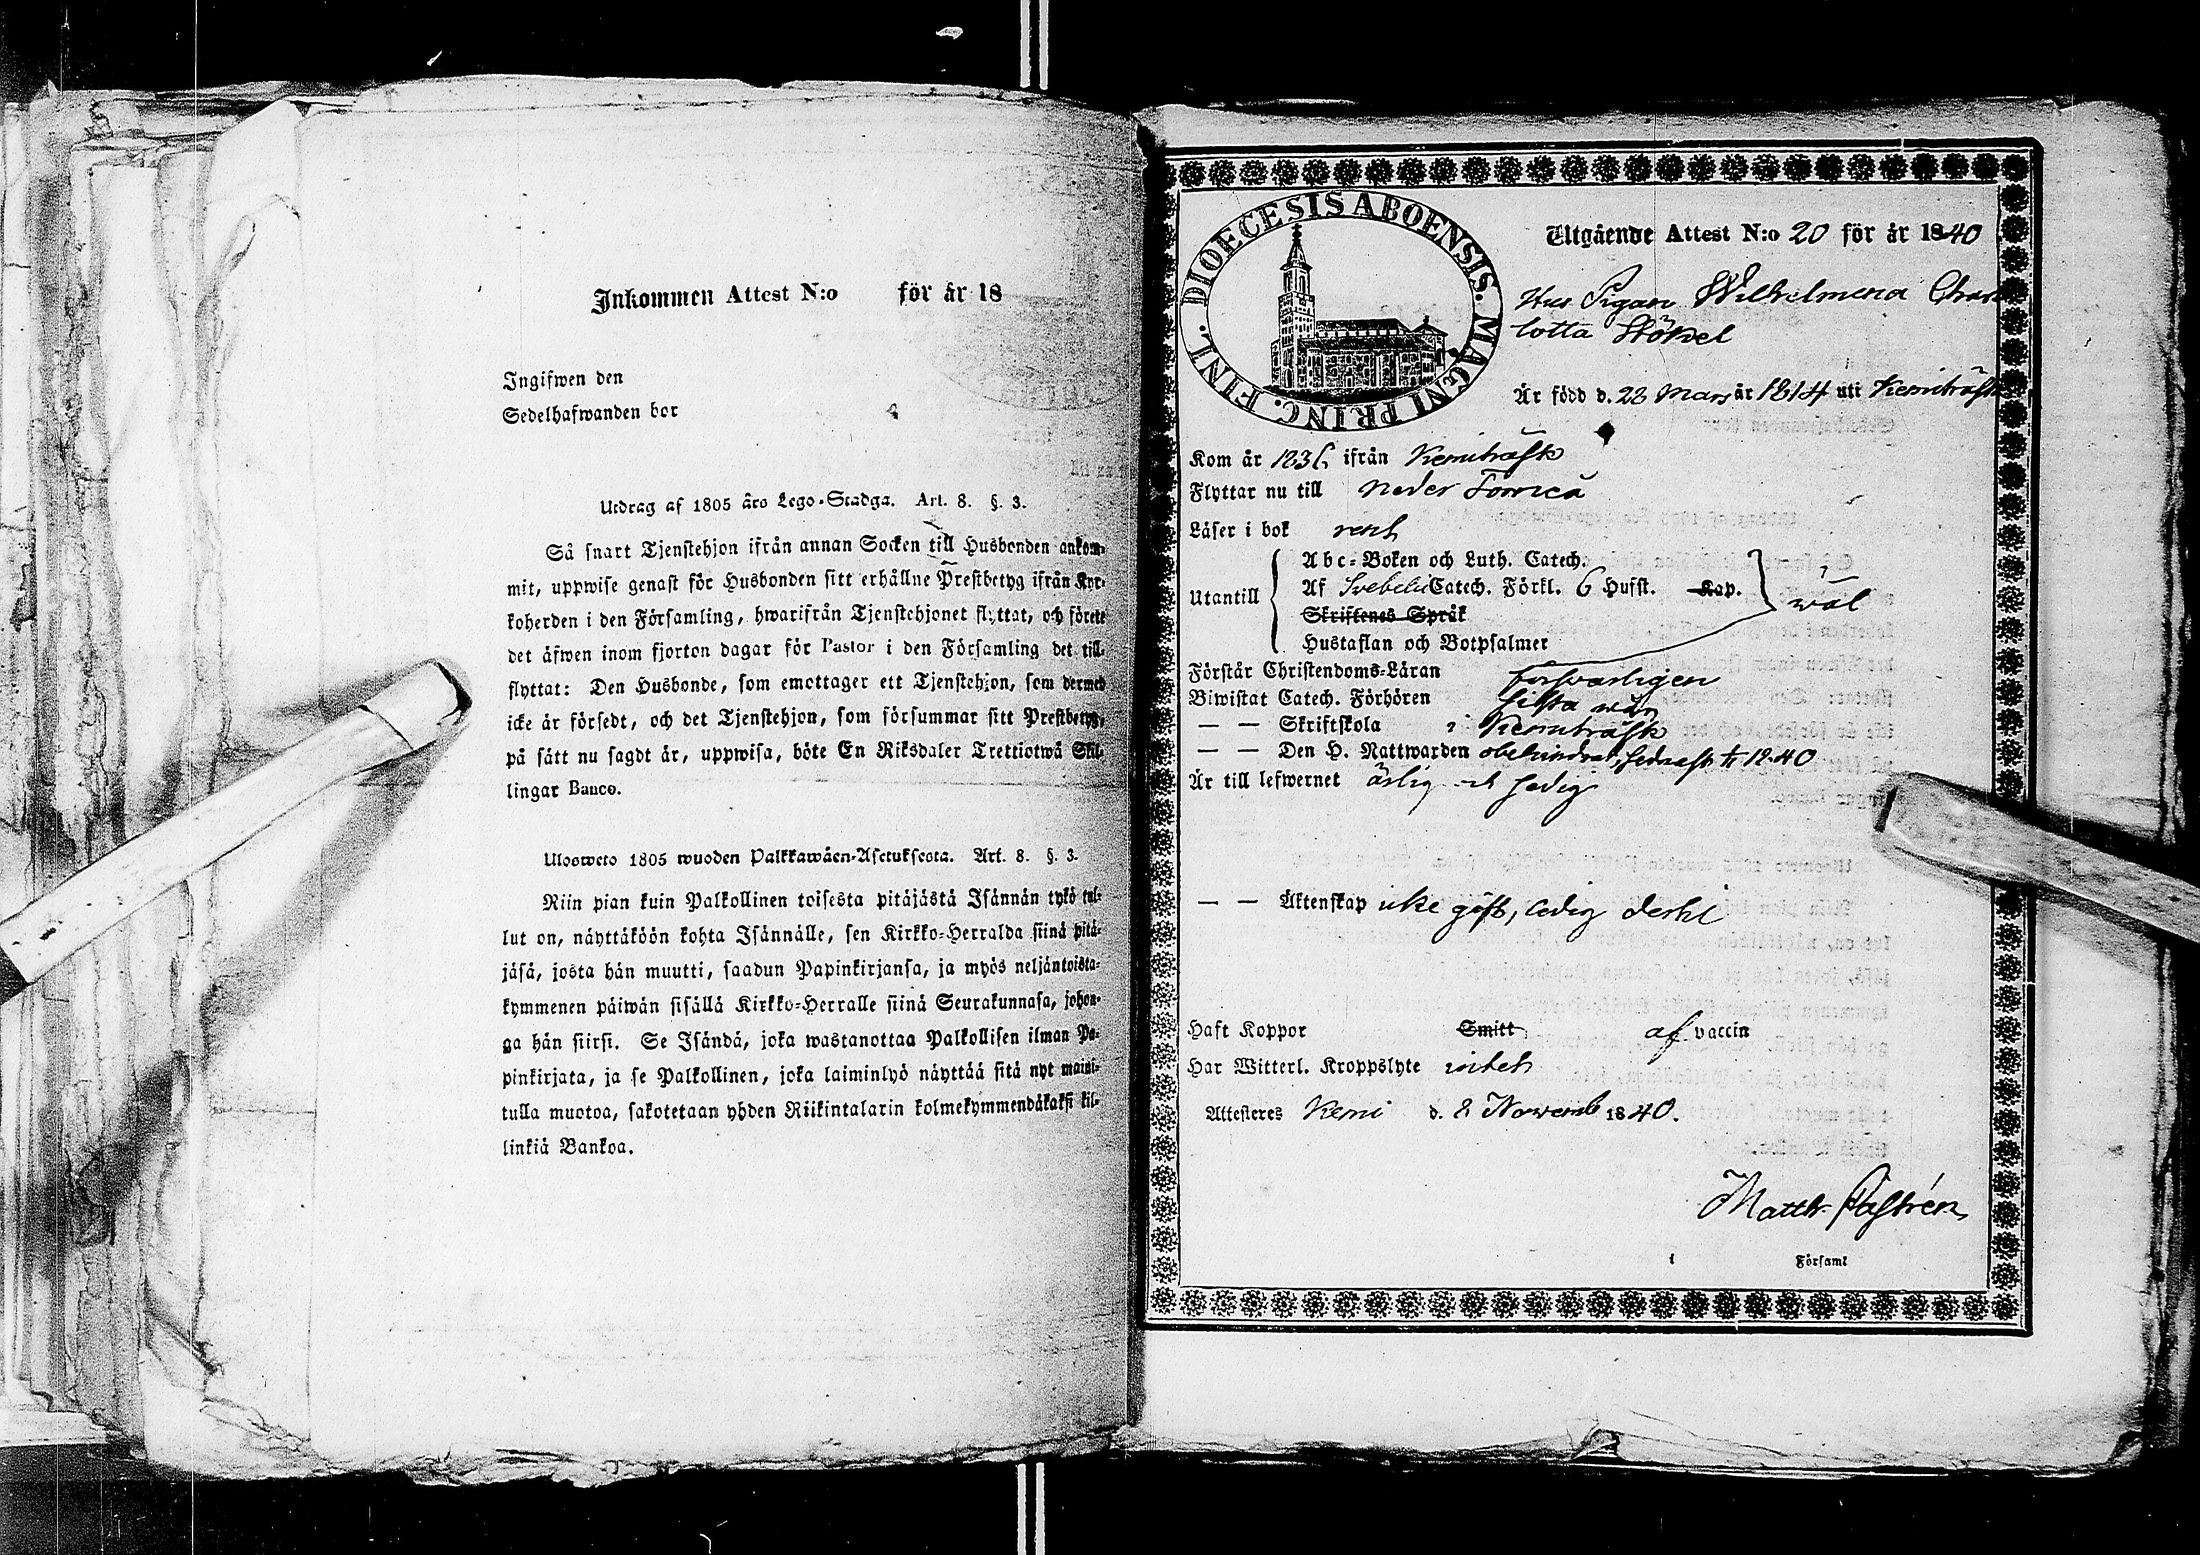 Inkommen Attest N:o för år 18
Ingifwen den
Sedelhafwanden bor
Utdrag af 1805 års Lego-Stadga. Art. 8. §. 3.
Så snart Tjenstehjon ifrån annan Socken till Husbonden ankom-
mit, uppwise genast för Husbonden sitt erhållne Prestbetyg ifrån Kyr-
koherden i den Församling, hwarifrån Tjenstehjonet flyttat, och förete
det äfwen inom fjorton dagar för Pastor i den Församling det till-
flyttat: Den Husbonde, som emottager ett Tjenstehjon, som dermed
icke är försedt, och det Tjenstehjon, som försummar sitt Prestbetyg,
på sätt nu sagdt är, uppwisa, böte En Riksdaler Trettiotwå Skil-
lingar Banco.
Ulosweto 1805 wuoden Palkkawäen-Asetuksesta. Art. 8. §. 3.
Niin pian kuin Palkollinen toisesta pitäjästä Isännän tykö tul-
lut on, näyttäköön kohta Isännälle, sen Kirkko-Herralda siinä pitä-
jäsä, josta hän muutti, saadun Papinkirjansa, ja myös neljäntoista-
kymmenen päiwän sisällä Kirkko-Herralle siinä Seurakunnasa, johon-
ga hän siirsi. Se Isändä, joka wastanottaa Palkollisen ilman Pa-
pinkirjata, ja se Palkollinen, joka laiminlyö näyttää sitä nyt maini-
tulla muotoa, sakotetaan yhden Riikintalarin kolmekymmendäkaksi kil-
linkiä Bankoa.
DIOECESIS ABOENSIS. MAGNI PRINC. FINL.
Utgående Attest N:o 20 för år 1840
Hus Pigan Wilhelmena Char
lotta Stökel
Är född d. 23 Mars år 1814 uti Kemiträsk
Kom år 1836 ifrån Kemiträsk
Flyttar nu till Neder Torneå
Läser i bok rent
Abc-Boken och Luth. Catech.
Utantill Af Svebelii Catech. Förkl. 6 Hufst. Kap. wäl
Skriftenes Språk
Hustaflan och Botpsalmer
Förstår Christendoms-Läran försvarligen
Biwistat Catech. Förhören sista
— — Skriftskola i Kemiträsk
— — Den H. Nattwarden obehindrat, sednast 1840
Är till lefwernet ärlig och sedig
— — Äktenskap icke gift, ledig dertil
Haft Koppor Smitt af vaccin
Har Witterl. Kroppslyte intet
Attesteres Kemi d. 8 Novemb 1840.
Matth. Castrén
i Församl